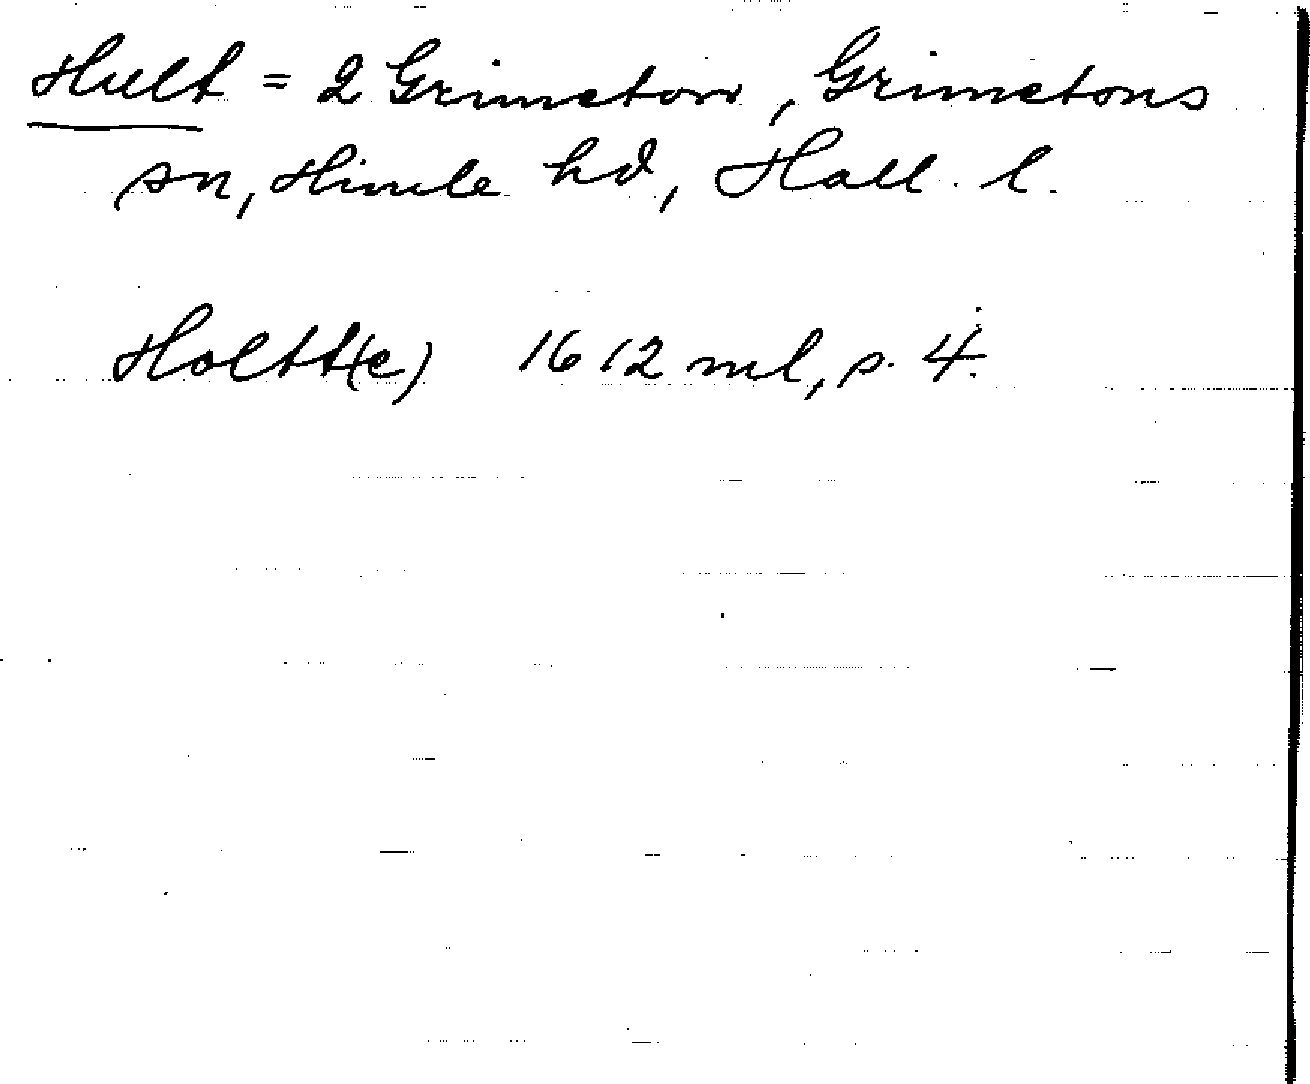 Hult = 2 Grimeton, Grimetons
sn, Himle hd, Hall. l.
Holtt(e) 1612 ml, s. 4.